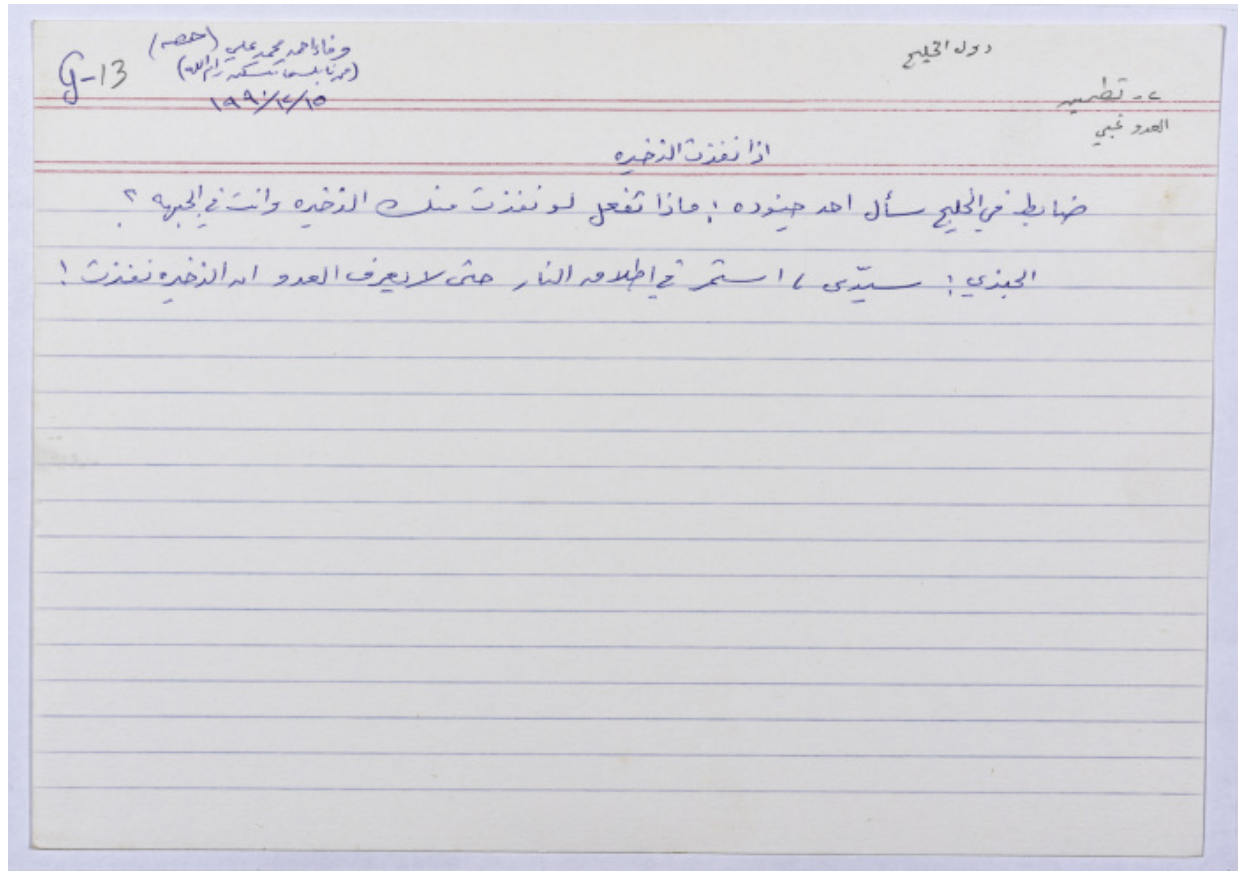 دول الخليج
G-13
وفاء احمد محمد علي (حصه)
(من نابلس تسكن رام الله)
١٩٩٠/١٢/١٥
٢- تطمين
العدو غبي
اذا نفذت الذخيره
ضابط في الخليج سأل احد جنوده : ماذا تفعل لو نفذت منك الذخيره وانت في الجبهه ؟
الجندي : سيّدي ، استمر في اطلاق النار حتى لا يعرف العدو ان الذخيره نفذت !